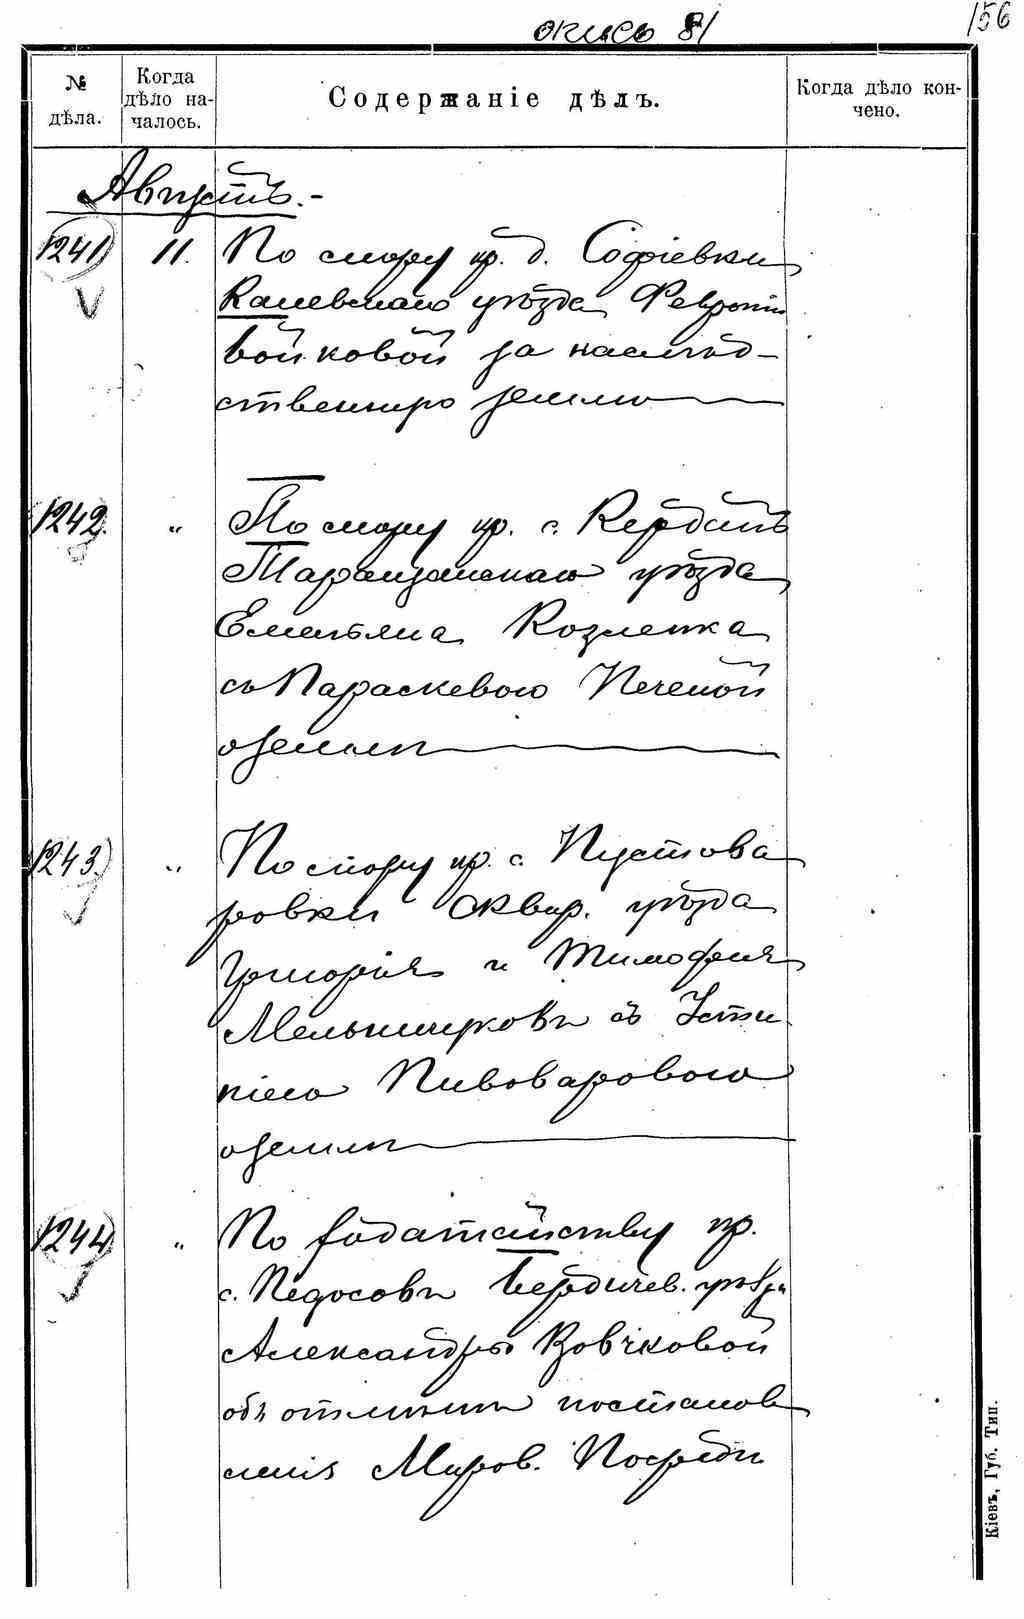 опись 81
156
№ дѣла.
Когда дѣло на-
чалось.
Содержаніе дѣлъ.
Когда дѣло кон-
чено.
Августъ.-
1241 11. По спору кр. д. Софіевки
Каневскаго уѣзда Февроніи
Войковой за наслѣд-
ственную землю
1242. " По спору кр. с. Кердан
Таращанскаго уѣзда
Емельяна Козленка
съ Параскевою Печеной
о землѣ
1243. " По спору кр. с. Пустова
ровки Сквир. уѣзда
Григорія и Тимофея
Мельничуковъ съ Усти
ніею Пивоваровою
о землѣ
1244 " По ходатайству кр.
с. Педосовъ Бердичев. уѣзда
Александры Вовчковой
объ отмѣнѣ постанов
ленія Миров. Посредн
Кіевъ, Губ. Тип.